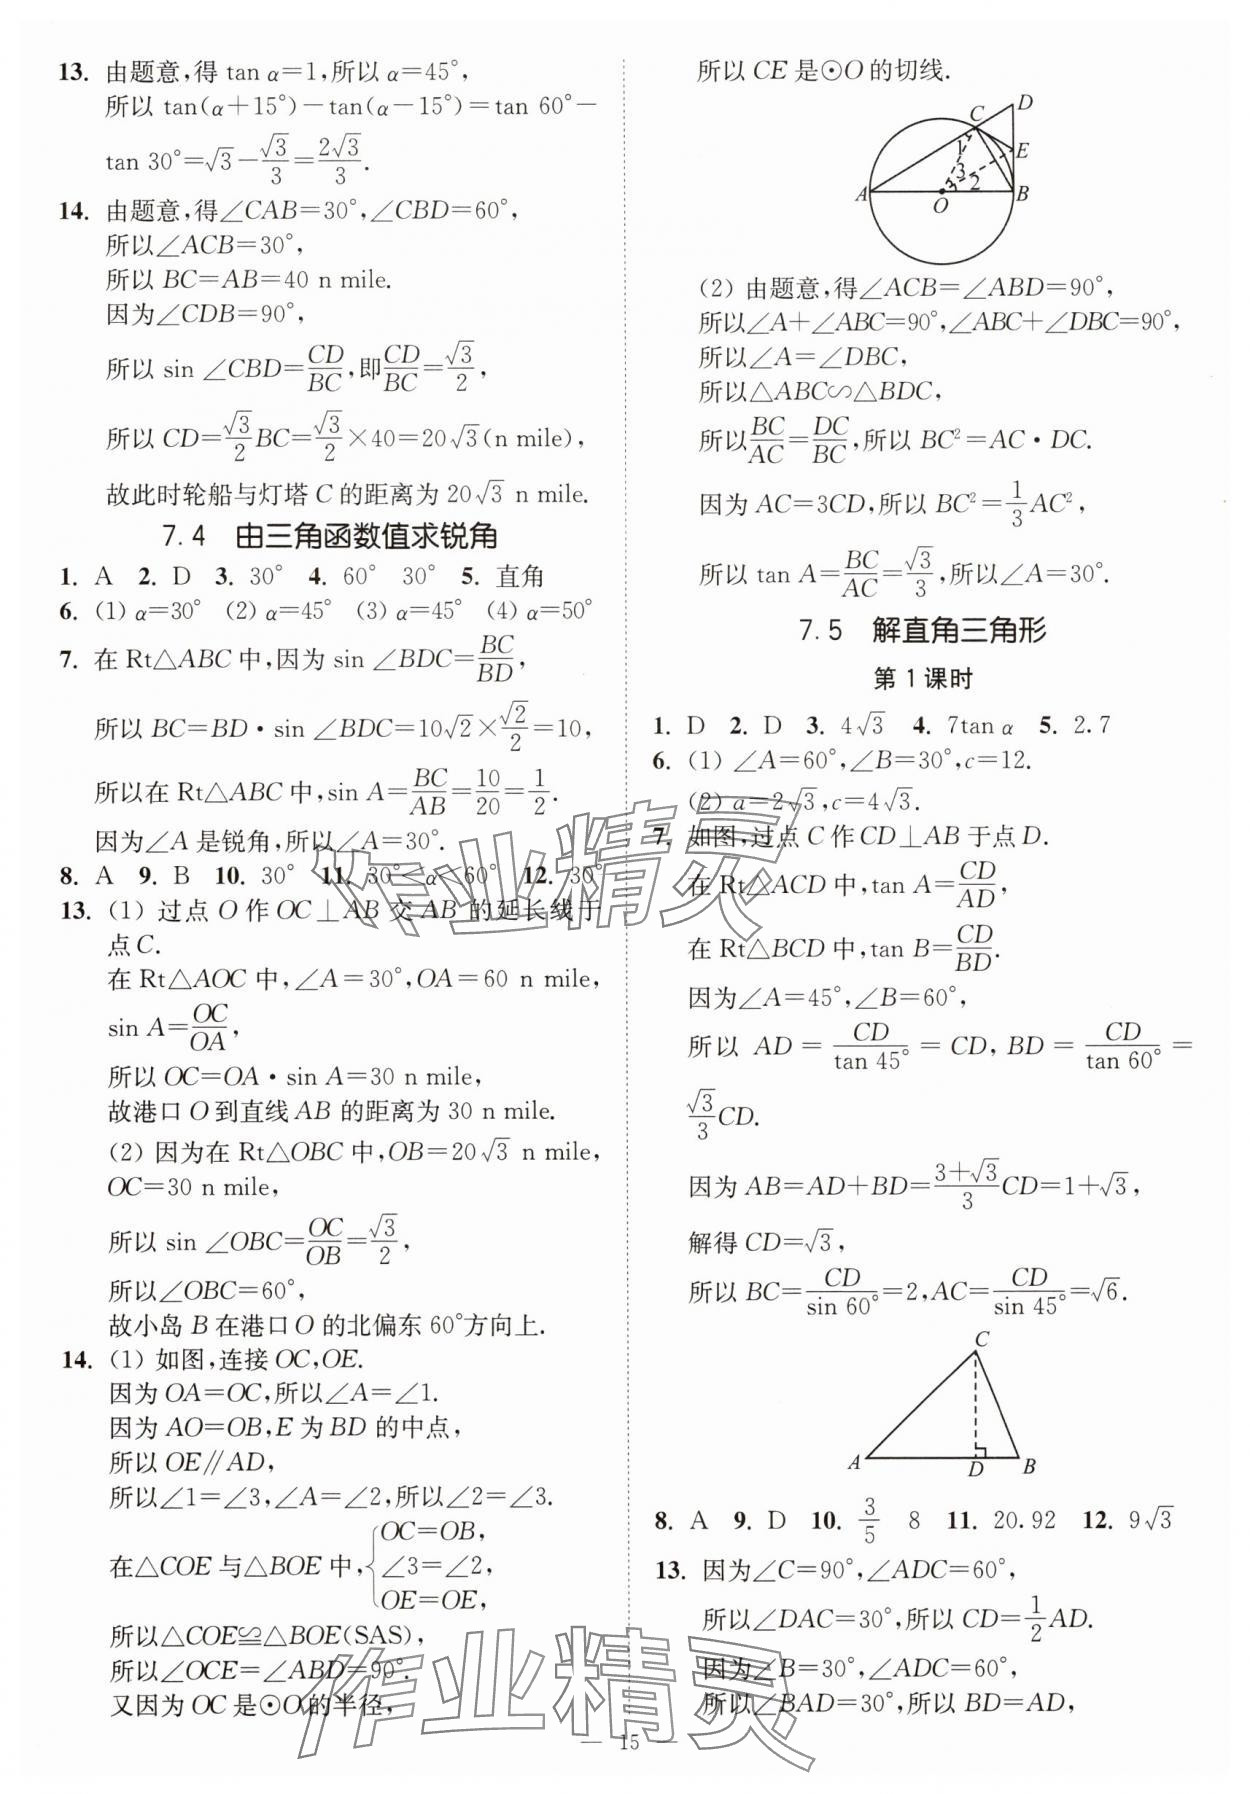 13. 由题意,得 tan α=1,所以 α=45°,
所以 tan(α+15°)-tan(α-15°)=tan 60°-
tan 30°=√3-√3/3=2√3/3.
14. 由题意,得∠CAB=30°,∠CBD=60°,
所以∠ACB=30°,
所以 BC=AB=40 n mile.
因为∠CDB=90°,
所以 sin ∠CBD=CD/BC,即CD/BC=√3/2,
所以 CD=√3/2BC=√3/2×40=20√3(n mile),
故此时轮船与灯塔 C 的距离为 20√3 n mile.
7.4 由三角函数值求锐角
1. A 2. D 3. 30° 4. 60° 30° 5. 直角
6. (1) α=30° (2) α=45° (3) α=45° (4) α=50°
7. 在 Rt△ABC 中,因为 sin ∠BDC=BC/BD,
所以 BC=BD·sin ∠BDC=10√2×√2/2=10,
所以在 Rt△ABC 中,sin A=BC/AB=10/20=1/2.
因为∠A 是锐角,所以∠A=30°.
8. A 9. B 10. 30° 11. 30°<α<60° 12. 30°
13. (1) 过点 O 作 OC⊥AB 交 AB 的延长线于
点 C.
在 Rt△AOC 中,∠A=30°,OA=60 n mile,
sin A=OC/OA,
所以 OC=OA·sin A=30 n mile,
故港口 O 到直线 AB 的距离为 30 n mile.
(2) 因为在 Rt△OBC 中,OB=20√3 n mile,
OC=30 n mile,
所以 sin ∠OBC=OC/OB=√3/2,
所以∠OBC=60°,
故小岛 B 在港口 O 的北偏东 60°方向上.
14. (1) 如图,连接 OC,OE.
因为 OA=OC,所以∠A=∠1.
因为 AO=OB,E 为 BD 的中点,
所以 OE∥AD,
所以∠1=∠3,∠A=∠2,所以∠2=∠3.
OC=OB,
在△COE 与△BOE 中,{∠3=∠2,
OE=OE,
所以△COE≌△BOE(SAS),
所以∠OCE=∠ABD=90°.
又因为 OC 是⊙O 的半径,
所以 CE 是⊙O 的切线.
D
C
1
E
3
3
2
A
O
B
(2) 由题意,得∠ACB=∠ABD=90°,
所以∠A+∠ABC=90°,∠ABC+∠DBC=90°,
所以∠A=∠DBC,
所以△ABC∽△BDC,
所以BC/AC=DC/BC,所以 BC²=AC·DC.
因为 AC=3CD,所以 BC²=1/3AC²,
所以 tan A=BC/AC=√3/3,所以∠A=30°.
7.5 解直角三角形
第 1 课时
1. D 2. D 3. 4√3 4. 7tan α 5. 2.7
6. (1) ∠A=60°,∠B=30°,c=12.
(2) a=2√3,c=4√3.
7. 如图,过点 C 作 CD⊥AB 于点 D.
在 Rt△ACD 中,tan A=CD/AD,
在 Rt△BCD 中,tan B=CD/BD.
因为∠A=45°,∠B=60°,
所以 AD=CD/tan 45°=CD,BD=CD/tan 60°=
√3/3CD.
因为 AB=AD+BD=3+√3/3CD=1+√3,
解得 CD=√3,
所以 BC=CD/sin 60°=2,AC=CD/sin 45°=√6.
C
A
D
B
8. A 9. D 10. 3/5 8 11. 20.92 12. 9√3
13. 因为∠C=90°,∠ADC=60°,
所以∠DAC=30°,所以 CD=1/2AD.
因为∠B=30°,∠ADC=60°,
所以∠BAD=30°,所以 BD=AD,
作业精灵
作业精灵
— 15 —